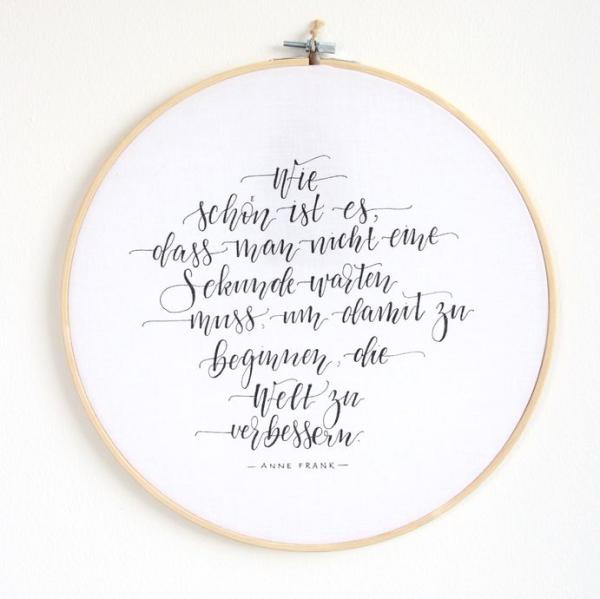 Wie
schön ist es,
dass man nicht eine
Sekunde warten
muss, um damit zu
beginnen, die
Welt zu
verbessern.
— ANNE FRANK —